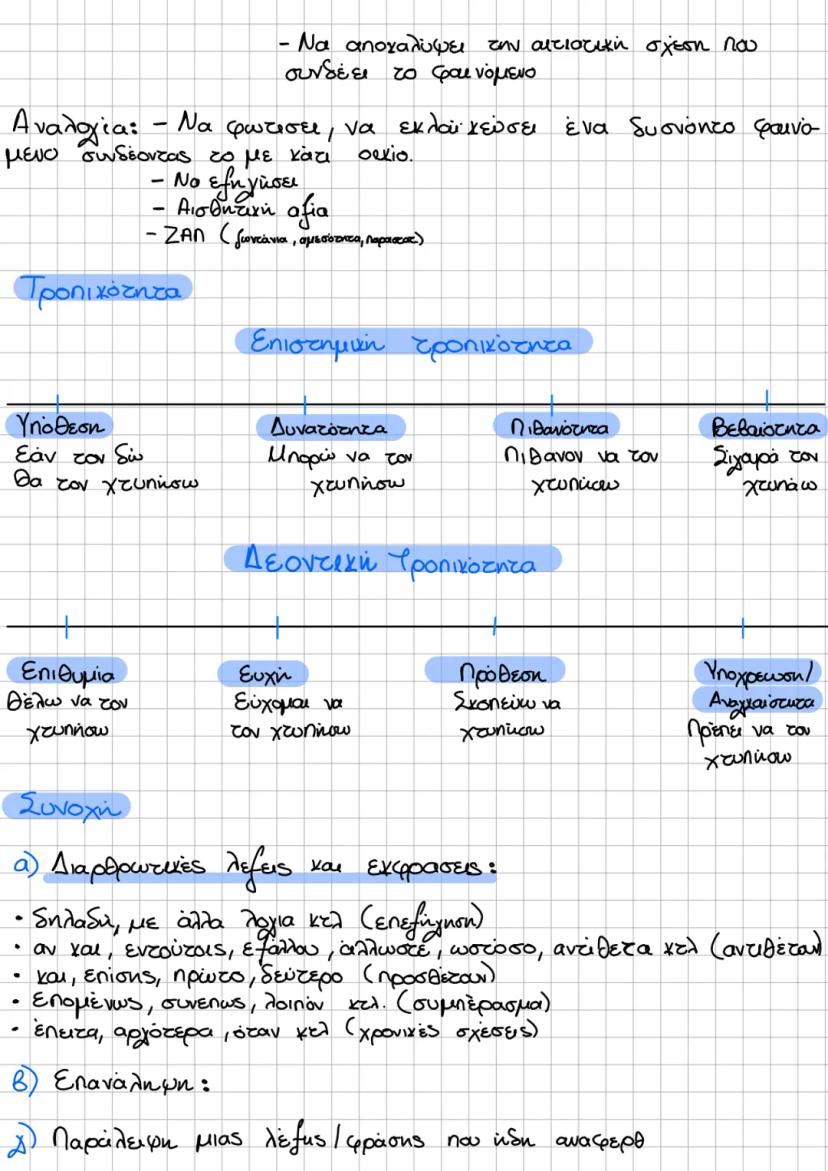 - Να αποκαλύψει την αιτιοτική σχέση που
συνδέει το φαινόμενο
Αναλογία: - Να φωτισει, να εκλαϊκεύσει ένα δυσνόητο φαινό-
μενο συνδέοντας το με κάτι οικίο.
- Να εξηγήσει
- Αισθητική αξία
- ΖΑΠ (ζωντάνια, αμεσότητα, παραστατ)
Τροπικότητα
Επιστημική τροπικότητα
Υπόθεση Δυνατότητα Πιθανότητα Βεβαιότητα
Εάν τον δω Μπορώ να τον Πιθανον να τον Σίγουρα τον
θα τον χτυπήσω χτυπήσω χτυπήσω χτυπάω
Δεοντική Τροπικότητα
Επιθυμία Ευχή Πρόθεση Υποχρεωση/
Θέλω να τον Εύχομαι να Σκοπεύω να Αναγκαιότητα
χτυπήσω τον χτυπήσω χτυπήσω Πρέπει να τον
χτυπήσω
Συνοχή
α) Διαρθρωτικές λεξεις και εκφρασεις:
• δηλαδή, με άλλα λόγια κτλ (επεξήγηση)
• αν και, εντούτοις, εξάλλου, άλλωστε, ωστόσο, αντίθετα κτλ (αντιθέταν)
• και, επίσης, πρώτο, δεύτερο (προσθέταν)
• Επομένως, συνεπως, λοιπόν κτλ. (συμπέρασμα)
• έπειτα, αργότερα, όταν κτλ (χρονικές σχέσεις)
β) Επανάληψη:
γ) Παράλειψη μιας λέξης/φράσης που ήδη αναφερθ